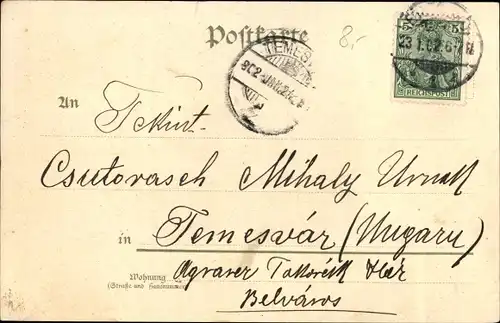 Postkarte
8,-
TEMES
902 JAN. 24
5 5
23.1.02.6-7 N
REICHSPOST
An Tekint.
Csutorasch Mihaly Urnak
in Temesvár (Ungarn)
Wohnung
(Straße und Hausnummer)
Agraver Takarék
Belváros